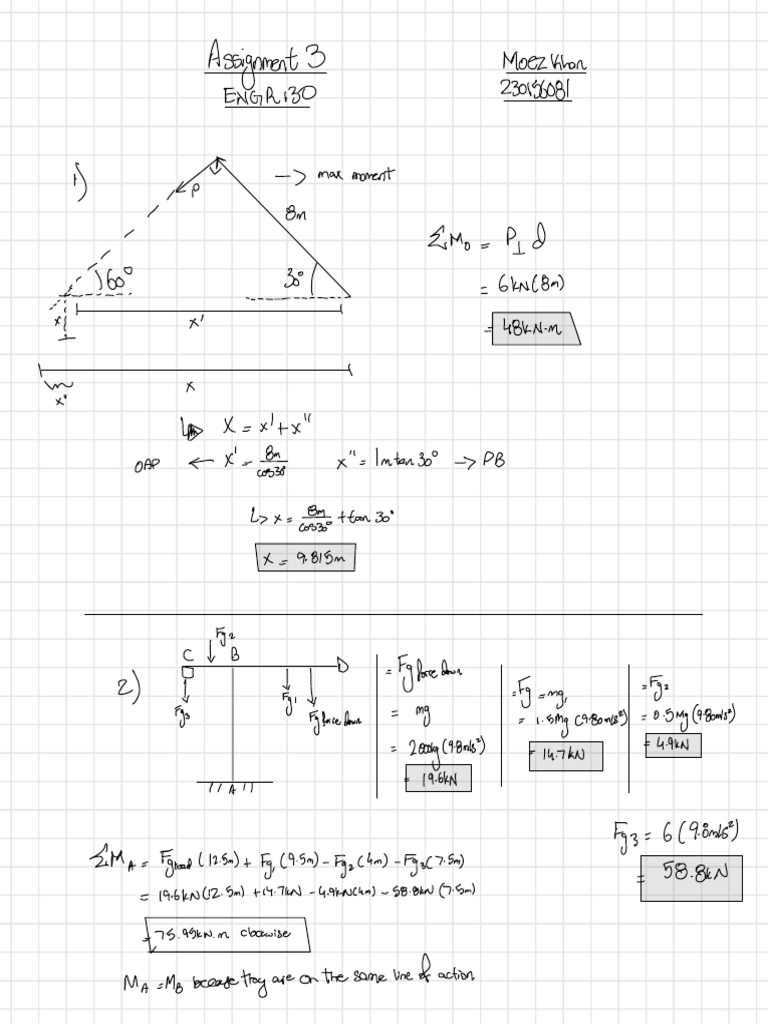 Assignment 3
ENGR 130
Moez Khan
230136081
1)
P
-> max moment
8m
60°
30°
x'
x
x"
ΣM₀ = P⊥ d
= 6kN(8m)
= 48kN·m
↳ X = x' + x"
OAP ← x' = 8m/cos30° x" = 1m tan 30° → PB
↳ x = 8m/cos30° + tan 30°
x = 9.815m
2)
Fg2
C B D
Fg3
Fg1
Fg force down
A
= Fg force down
= mg
= 2000kg (9.8m/s²)
= 19.6kN
= Fg = mg,
= 1.5Mg (9.80m/s²)
= 14.7kN
= Fg2
= 0.5Mg (9.80m/s²)
= 4.9kN
Fg3 = 6 (9.8m/s²)
= 58.8kN
ΣMA = Fgload (12.5m) + Fg1 (9.5m) - Fg2 (4m) - Fg3 (7.5m)
= 19.6kN(12.5m) + 14.7kN - 4.9kN(4m) - 58.8kN (7.5m)
= 75.95kN.m clockwise
MA = MB because they are on the same line of action